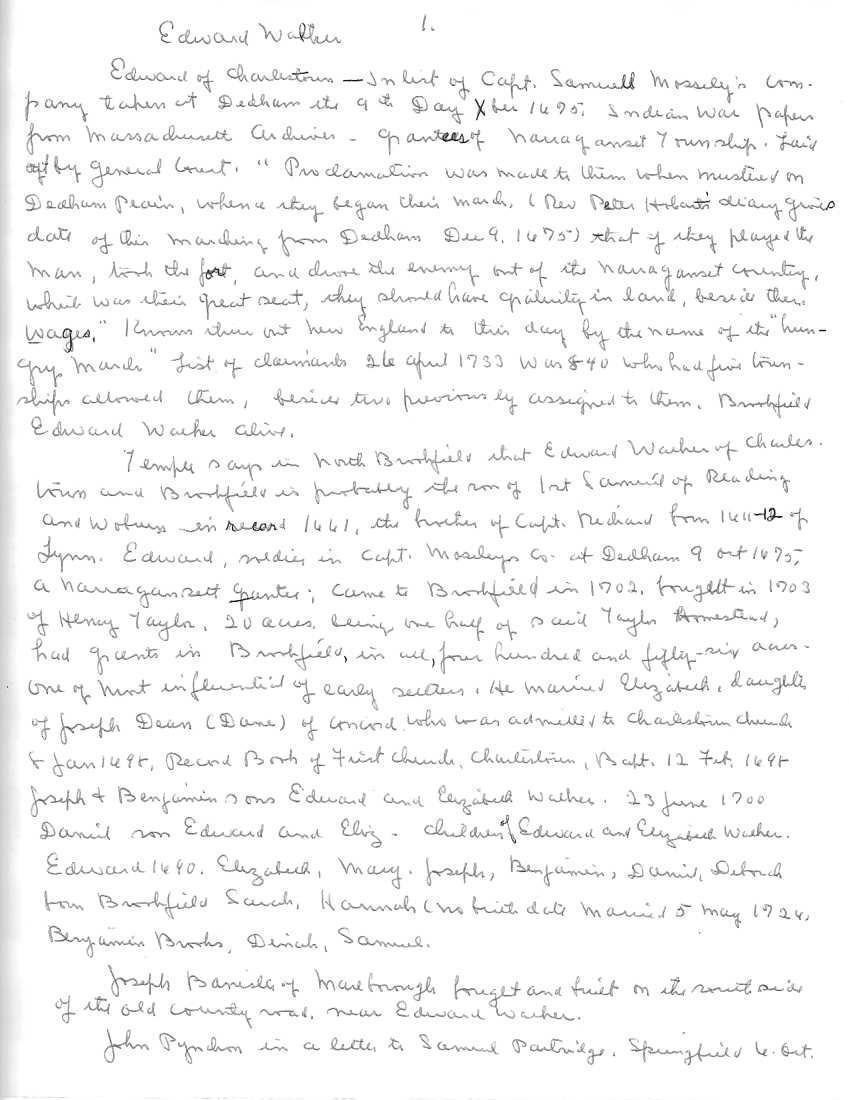 1.
Edward Walker
Edward of Charlestown — In list of Capt. Samuell Mossely's Com-
pany taken at Dedham the 9th Day Xber 1675. Indian War papers
from Massachusett Archives - grantees of Narraganset Township. Laid
by General Court. "Proclamation was made to them when mustered on
Dedham Plain, whence they began their march. (Rev Peter Hobart's diary gives
date of this marching from Dedham Dec 9, 1675) that if they played the
man, took the fort, and drove the enemy out of the Narraganset country,
which was their great seat, they should have gratuity in land, besides their
Wages." Known thru out New England to this day by the name of the "hun-
gry March" List of claimants 26 April 1733 was 840 who had five town-
ships allowed them, besides two previously assigned to them. Brookfield
Edward Walker alive.
Temple says in North Brookfield that Edward Walker of Charles-
town and Brookfield is probably the son of 1st Samuel of Reading
and Woburn - in record 1661, the brother of Capt. Richard born 1611-12 of
Lynn. Edward, soldier in Capt. Moseleys Co. at Dedham 9 Oct 1675,
a Narragansett Grantee; came to Brookfield in 1702, bought in 1703
of Henry Taylor, 20 acres, being one half of said Taylor Homestead,
had grants in Brookfield, in all, four hundred and fifty-six acres.
One of most influential of early settlers. He married Elizabeth, daughter
of Joseph Dean (Dane) of Concord who was admitted to Charlestown church
8 Jan 1698, Record Book of First Church, Charlestown, Bapt. 12 Feb. 1698
Joseph & Benjamin sons Edward and Elizabeth Walker. 23 June 1700
Daniel son Edward and Eliz - Children of Edward and Elizabeth Walker.
Edward 1690. Elizabeth, Mary. Joseph, Benjamin, Daniel, Deborah
born Brookfield Sarah, Hannah (no birth date Married 5 May 1726,
Benjamin Brooks, Dinah, Samuel.
Joseph Banister of Marlborough bought and built on the south side
of the old county road, near Edward Walker.
John Pynchon in a letter to Samuel Partridge, Springfield 6. Oct.